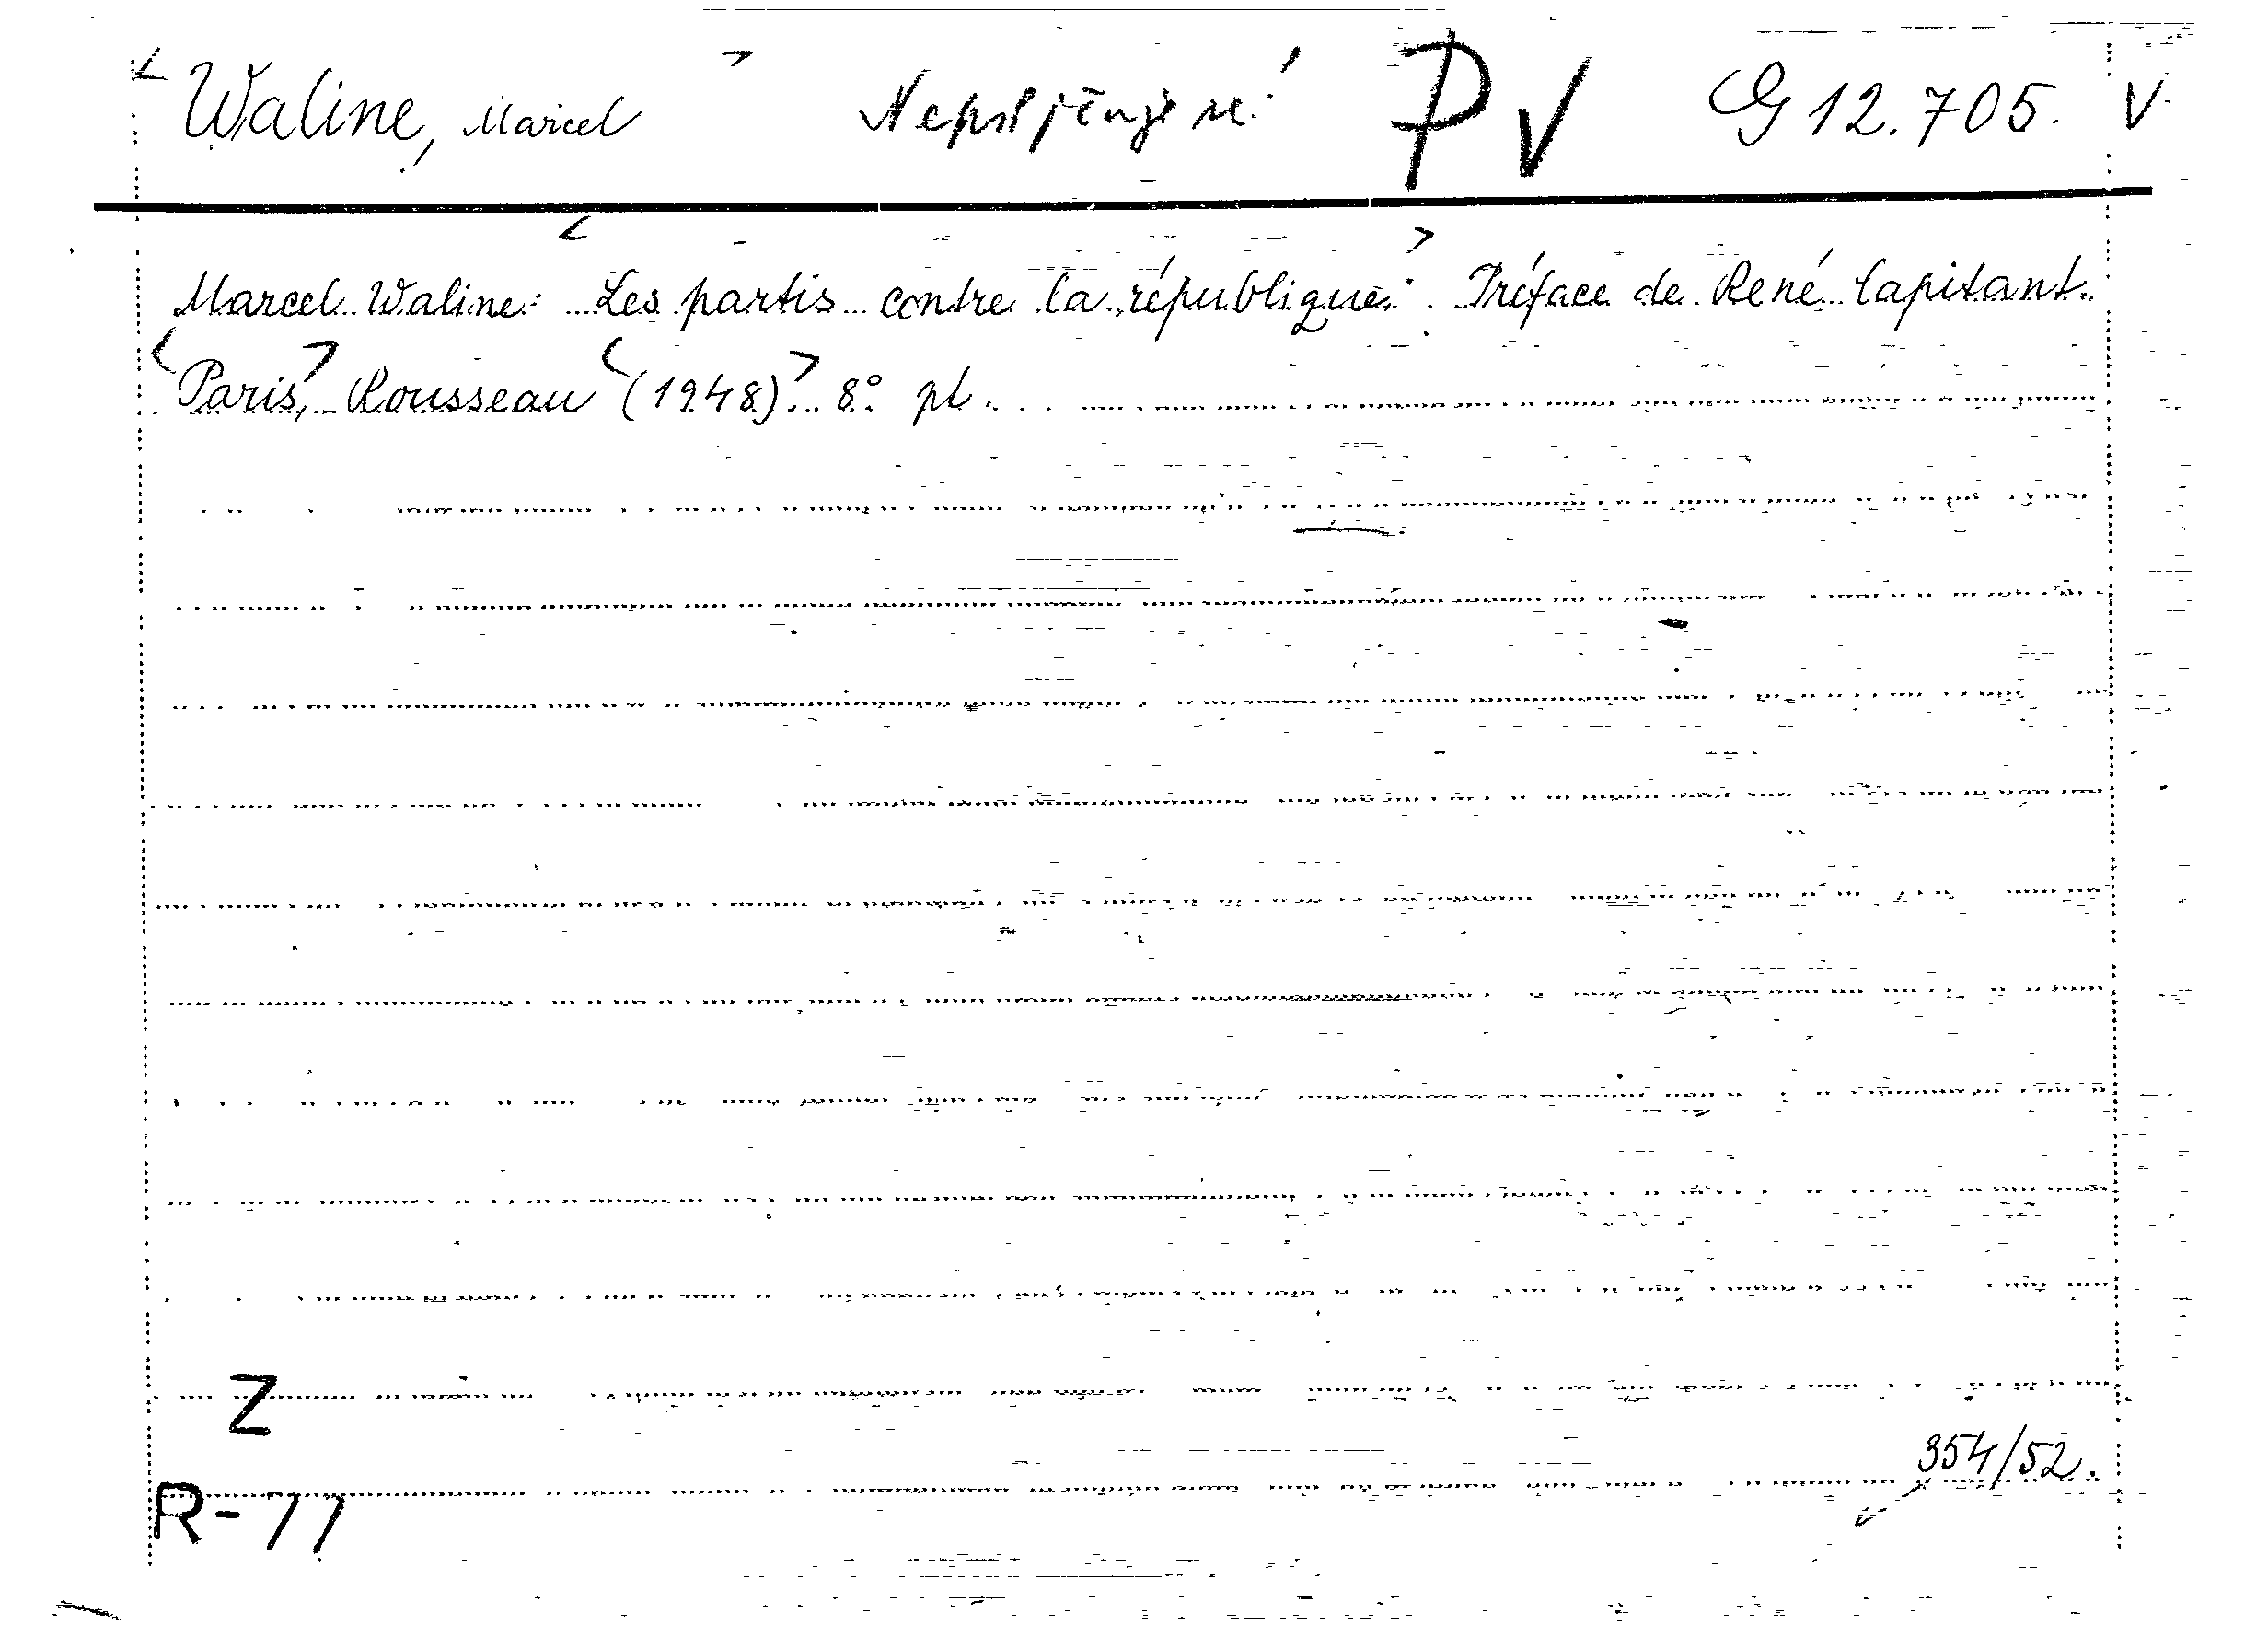 Waline, Marcel Nepůjčuje se! PV G 12.705. V
Marcel Waline: Les partis contre la république. Préface de René Capitant.
Paris, Rousseau (1948). 8° pl.
Z
354/52.
R-77